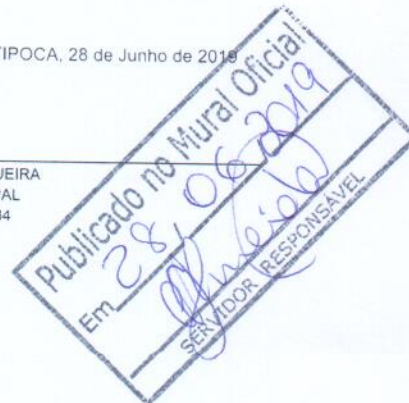 TIPOCA, 28 de Junho de 2019
UEIRA
AL
34
Publicado no Mural Oficial
Em 28 / 06 / 2019
SERVIDOR RESPONSÁVEL